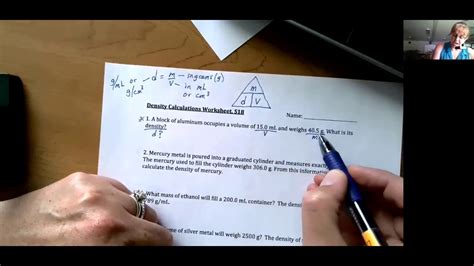 g/mL or d = m — in grams (g)
g/cm³ v — in mL
or cm³
m
d V
Density Calculations Worksheet, S18
Name:
1. A block of aluminum occupies a volume of 15.0 mL and weighs 40.5 g. What is its
V m
density?
d?
2. Mercury metal is poured into a graduated cylinder and measures exactly
The mercury used to fill the cylinder weighs 306.0 g. From this
calculate the density of mercury.
What mass of ethanol will fill a 200.0 mL container? The density of
789 g/mL.
ume of silver metal will weigh 2500 g? The density of